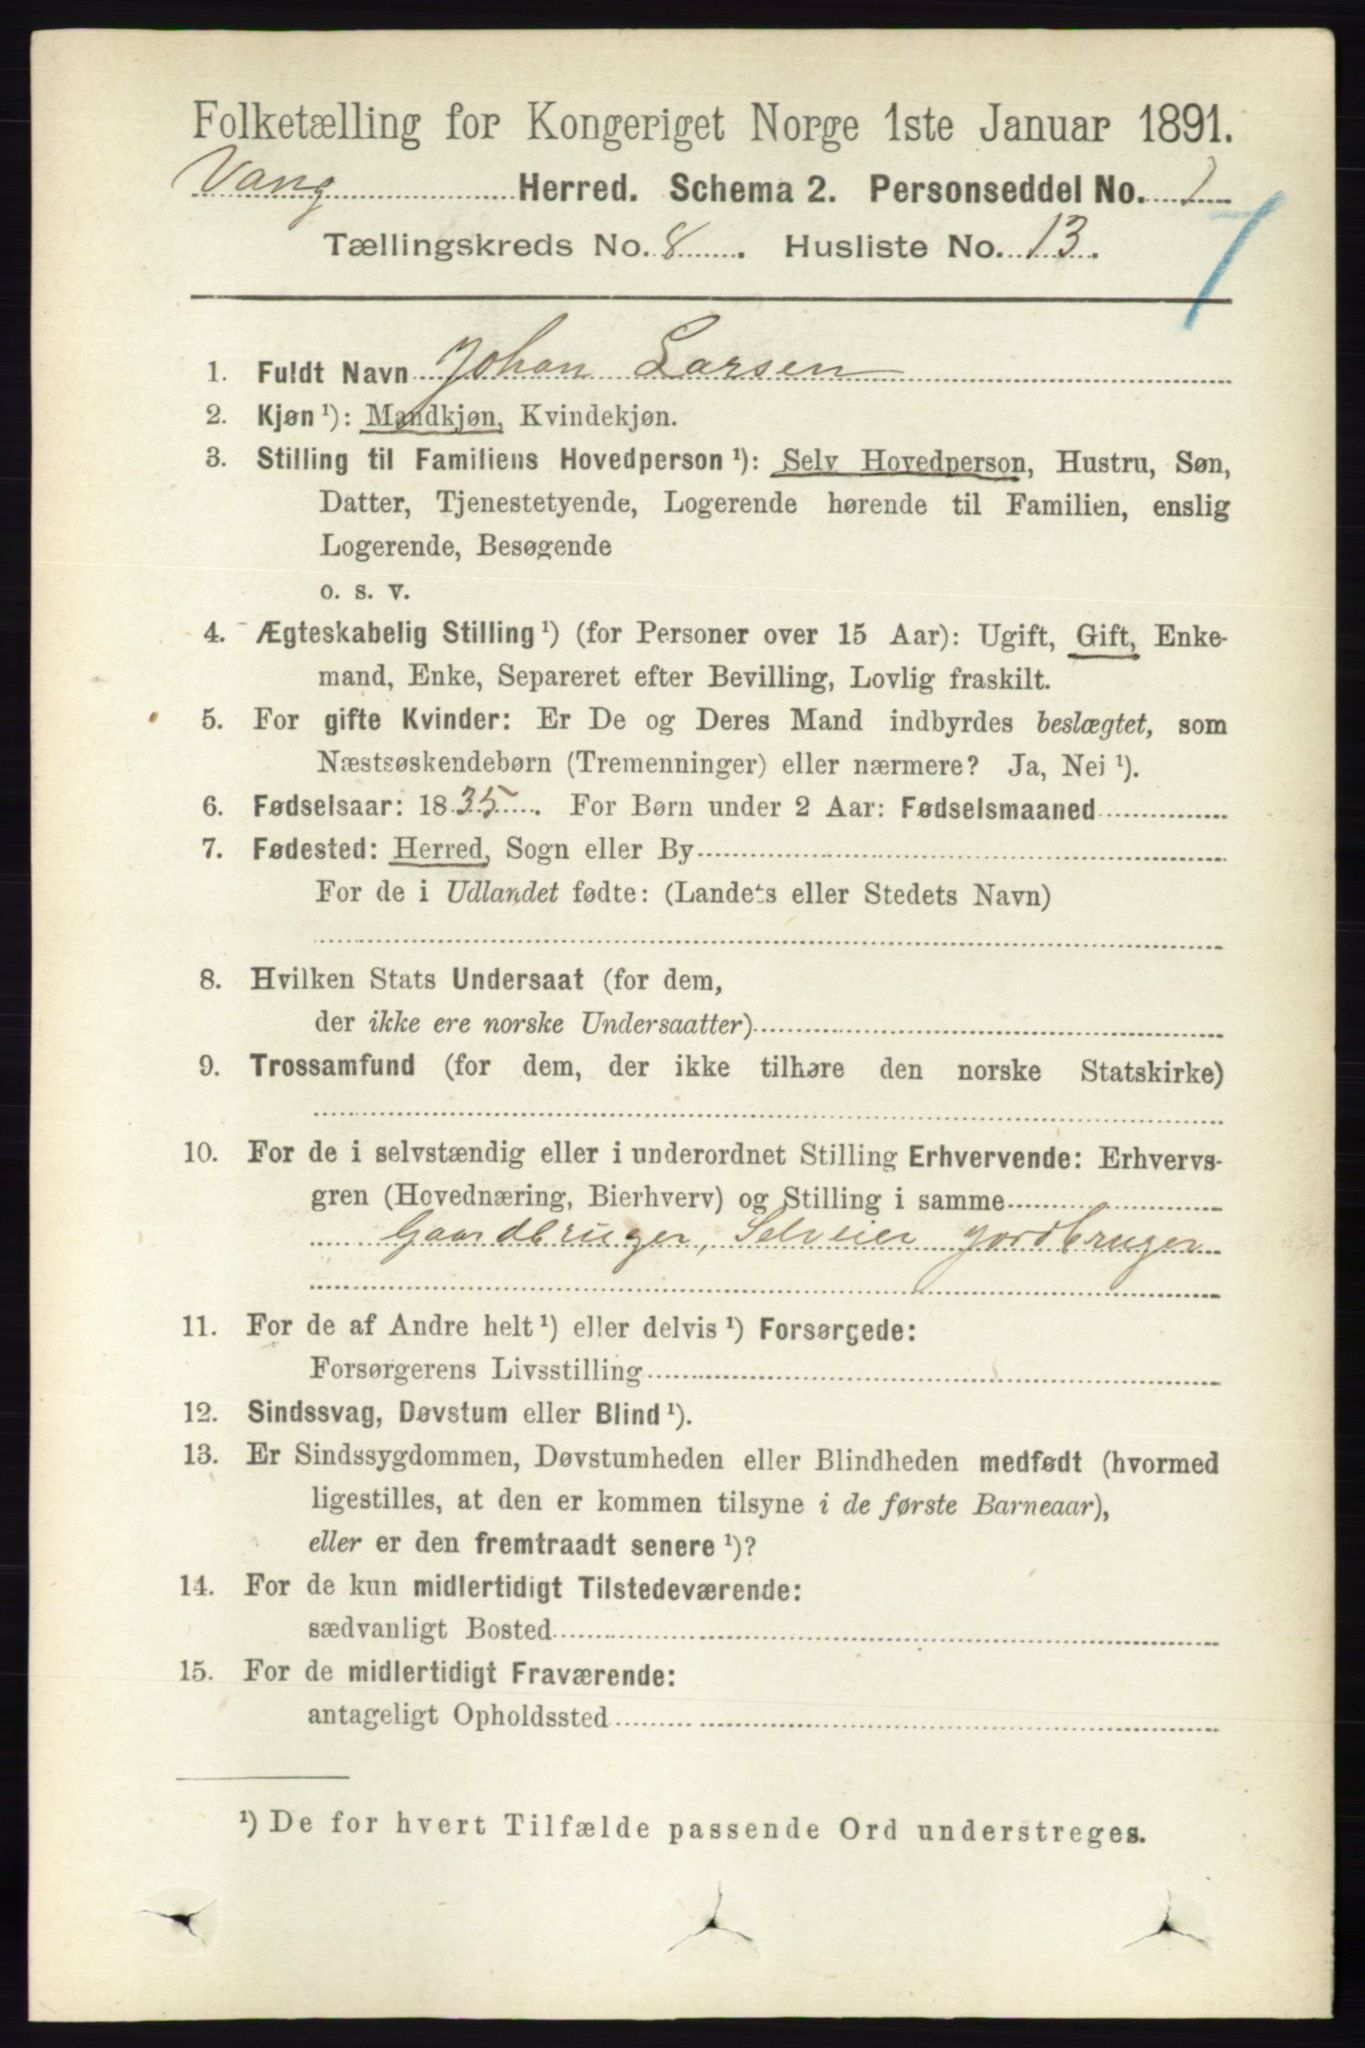 Folketælling for Kongeriget Norge 1ste Januar 1891.
Vang Herred. Schema 2. Personseddel No. 1
Tællingskreds No. 8. Husliste No. 13.
1. Fuldt Navn Johan Larsen
2. Kjøn ¹): Mandkjøn, Kvindekjøn.
3. Stilling til Familiens Hovedperson ¹): Selv Hovedperson, Hustru, Søn,
Datter, Tjenestetyende, Logerende hørende til Familien, enslig
Logerende, Besøgende
o. s. v.
4. Ægteskabelig Stilling ¹) (for Personer over 15 Aar): Ugift, Gift, Enke-
mand, Enke, Separeret efter Bevilling, Lovlig fraskilt.
5. For gifte Kvinder: Er De og Deres Mand indbyrdes beslægtet, som
Næstsøskendebørn (Tremenninger) eller nærmere? Ja, Nei ¹).
6. Fødselsaar: 1835. For Børn under 2 Aar: Fødselsmaaned
7. Fødested: Herred, Sogn eller By
For de i Udlandet fødte: (Landets eller Stedets Navn)
8. Hvilken Stats Undersaat (for dem,
der ikke ere norske Undersaatter)
9. Trossamfund (for dem, der ikke tilhøre den norske Statskirke)
10. For de i selvstændig eller i underordnet Stilling Erhvervende: Erhvervs-
gren (Hovednæring, Bierhverv) og Stilling i samme
Gaardbruger, Selveier Jordbruger
11. For de af Andre helt ¹) eller delvis ¹) Forsørgede:
Forsørgerens Livsstilling
12. Sindssvag, Døvstum eller Blind ¹).
13. Er Sindssygdommen, Døvstumheden eller Blindheden medfødt (hvormed
ligestilles, at den er kommen tilsyne i de første Barneaar),
eller er den fremtraadt senere ¹)?
14. For de kun midlertidigt Tilstedeværende:
sædvanligt Bosted
15. For de midlertidigt Fraværende:
antageligt Opholdssted
¹) De for hvert Tilfælde passende Ord understreges.